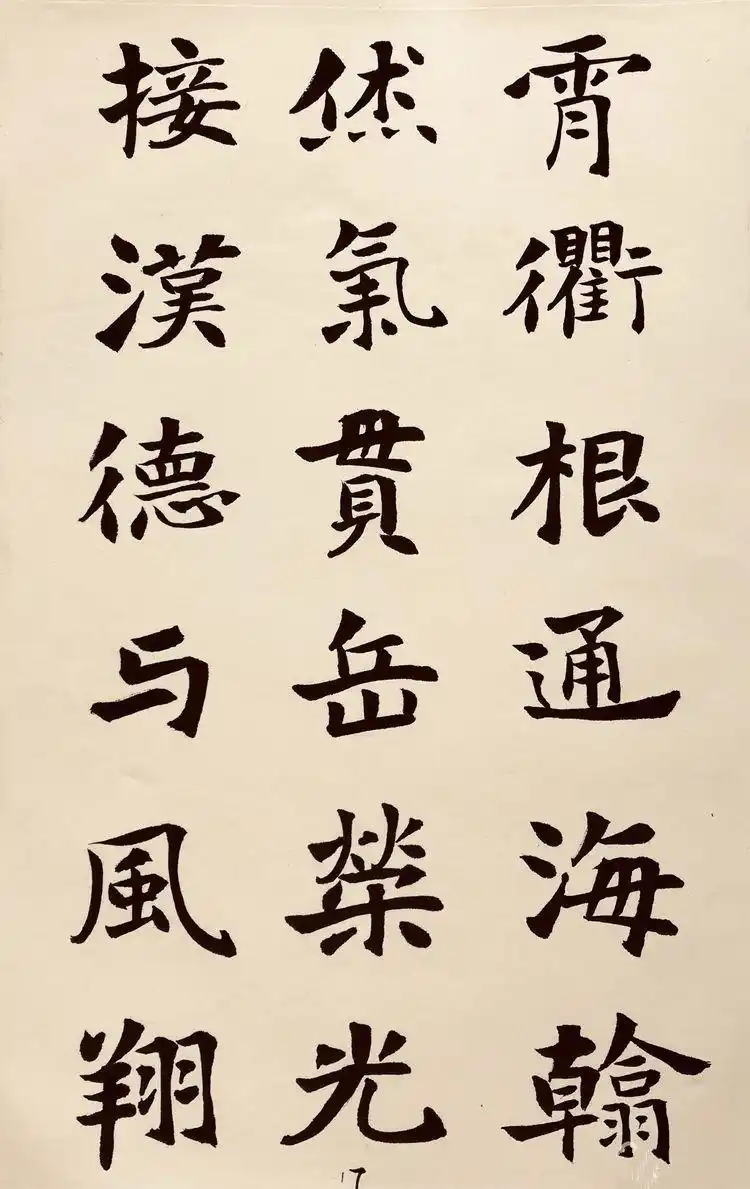 霄衢根通海翰
烋氣貫岳榮光
接漢德与風翔
17